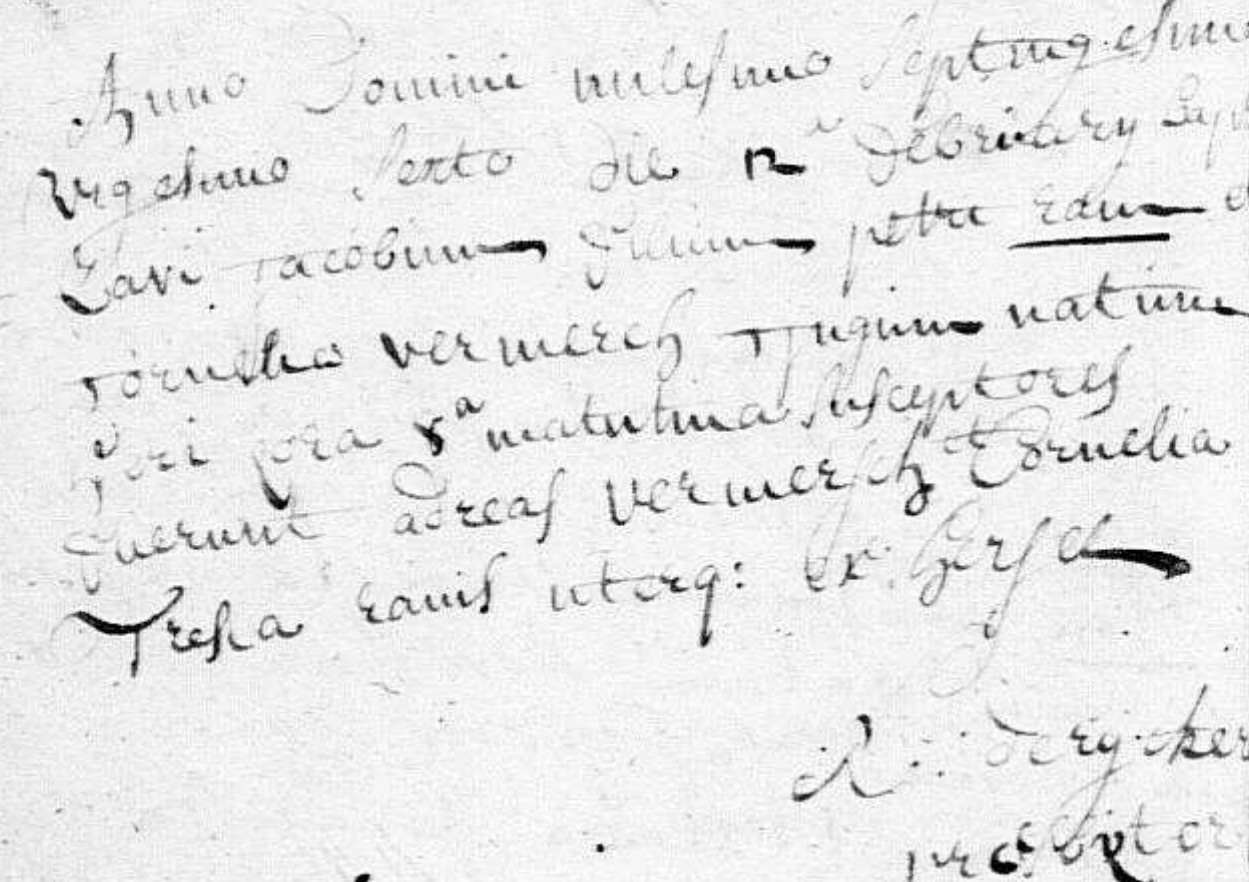 Anno Domini milesimo septingesimo
vigesimo sexto die 12a februarij bapt
zavi jacobum filium petri ram
cornelia vermerch conjugum natum
heri hora 8a matutina susceptores
fuerunt adreas vermersch Cornelia
Tresia ravis uterq: ex herse
R: derycker